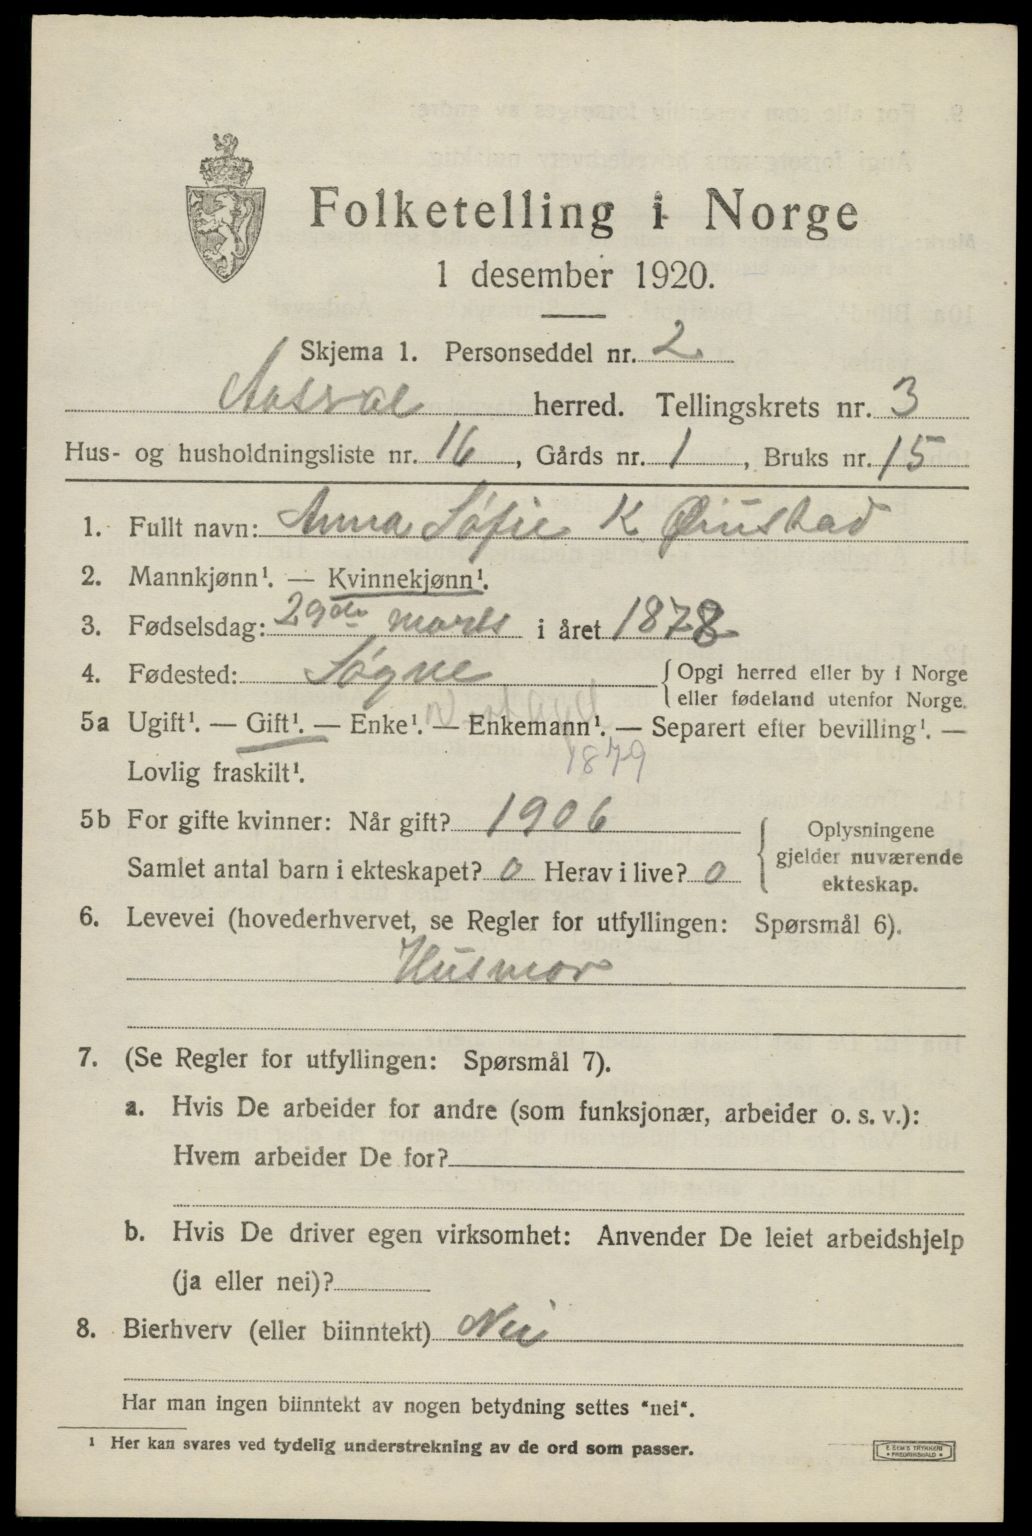 Folketelling i Norge
1 desember 1920.
Skjema 1. Personseddel nr. 2
Aaseral herred. Tellingskrets nr. 3
Hus- og husholdningsliste nr. 16, Gårds nr. 1, Bruks nr. 15
1. Fullt navn: Anna Søfie K Øiustad
2. Mannkjønn¹. — Kvinnekjønn¹.
3. Fødselsdag: 29de marts i året 1878
4. Fødested: Søgne { Opgi herred eller by i Norge
eller fødeland utenfor Norge.
5a Ugift¹. — Gift¹. — Enke¹. — Enkemann¹. — Separert efter bevilling¹. —
Lovlig fraskilt¹. 1879
5b For gifte kvinner: Når gift? 1906
Samlet antal barn i ekteskapet? 0 Herav i live? 0
{ Oplysningene
gjelder nuværende
ekteskap.
6. Levevei (hovederhvervet, se Regler for utfyllingen: Spørsmål 6).
Husmor
7. (Se Regler for utfyllingen: Spørsmål 7).
a. Hvis De arbeider for andre (som funksjonær, arbeider o. s. v.):
Hvem arbeider De for?
b. Hvis De driver egen virksomhet: Anvender De leiet arbeidshjelp
(ja eller nei)?
8. Bierhverv (eller biinntekt) Nei
Har man ingen biinntekt av nogen betydning settes "nei".
¹ Her kan svares ved tydelig understrekning av de ord som passer.
E. SEM'S TRYKKERI
FREDRIKSHALD